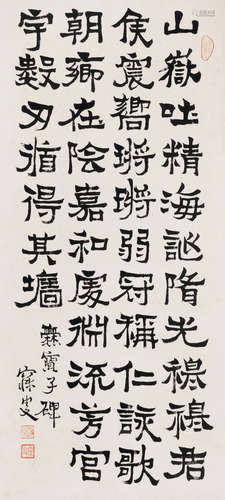 山嶽吐精海誕隋光穆穆君
侯震嚮鏘鏘弱冠稱仁詠歌
朝鄉在陰嘉和處淵流芳宮
宇數刃循得其墻
爨寶子碑
寐叟